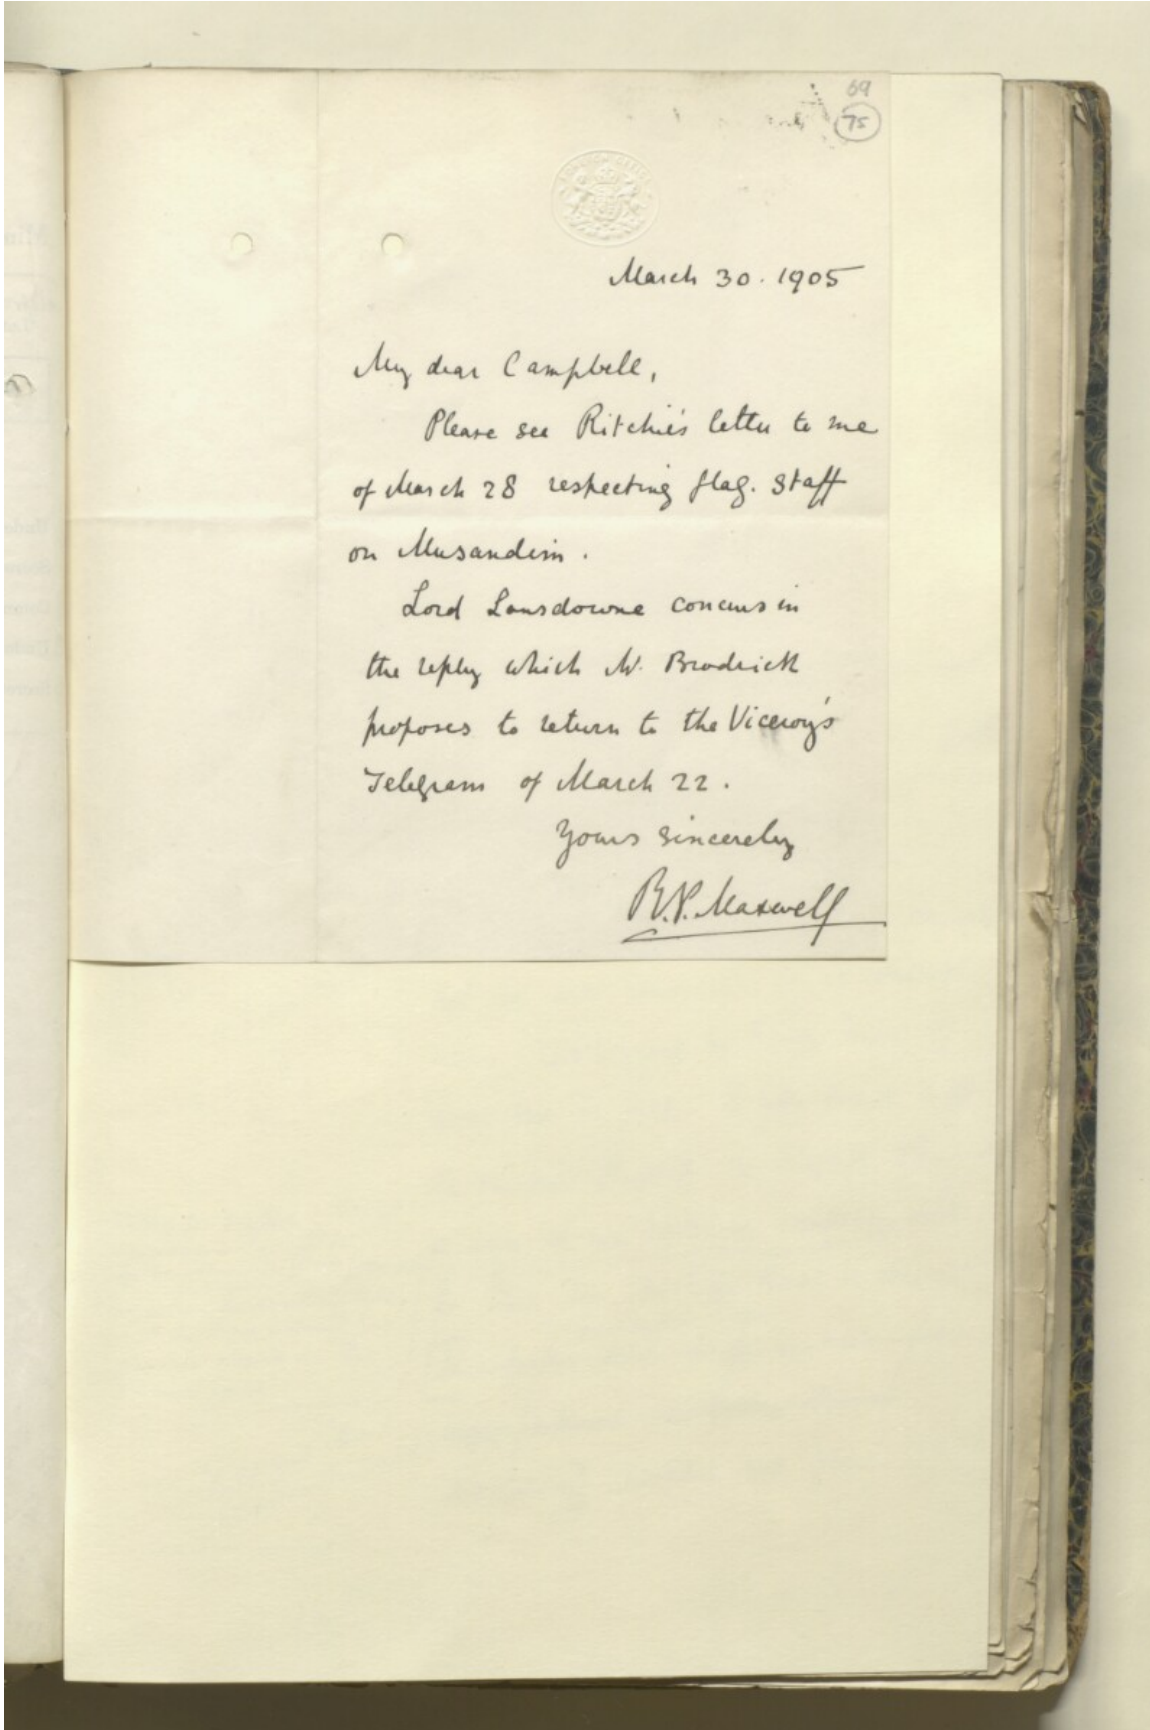 69
75
FOREIGN OFFICE
March 30. 1905
My dear Campbell,
Please see Ritchie's letter to me
of March 28 respecting flag. staff
on Musandim.
Lord Lansdowne concurs in
the reply which Mr. Brodrick
proposes to return to the Viceroy's
Telegram of March 22.
Yours sincerely
R.P. Maxwell